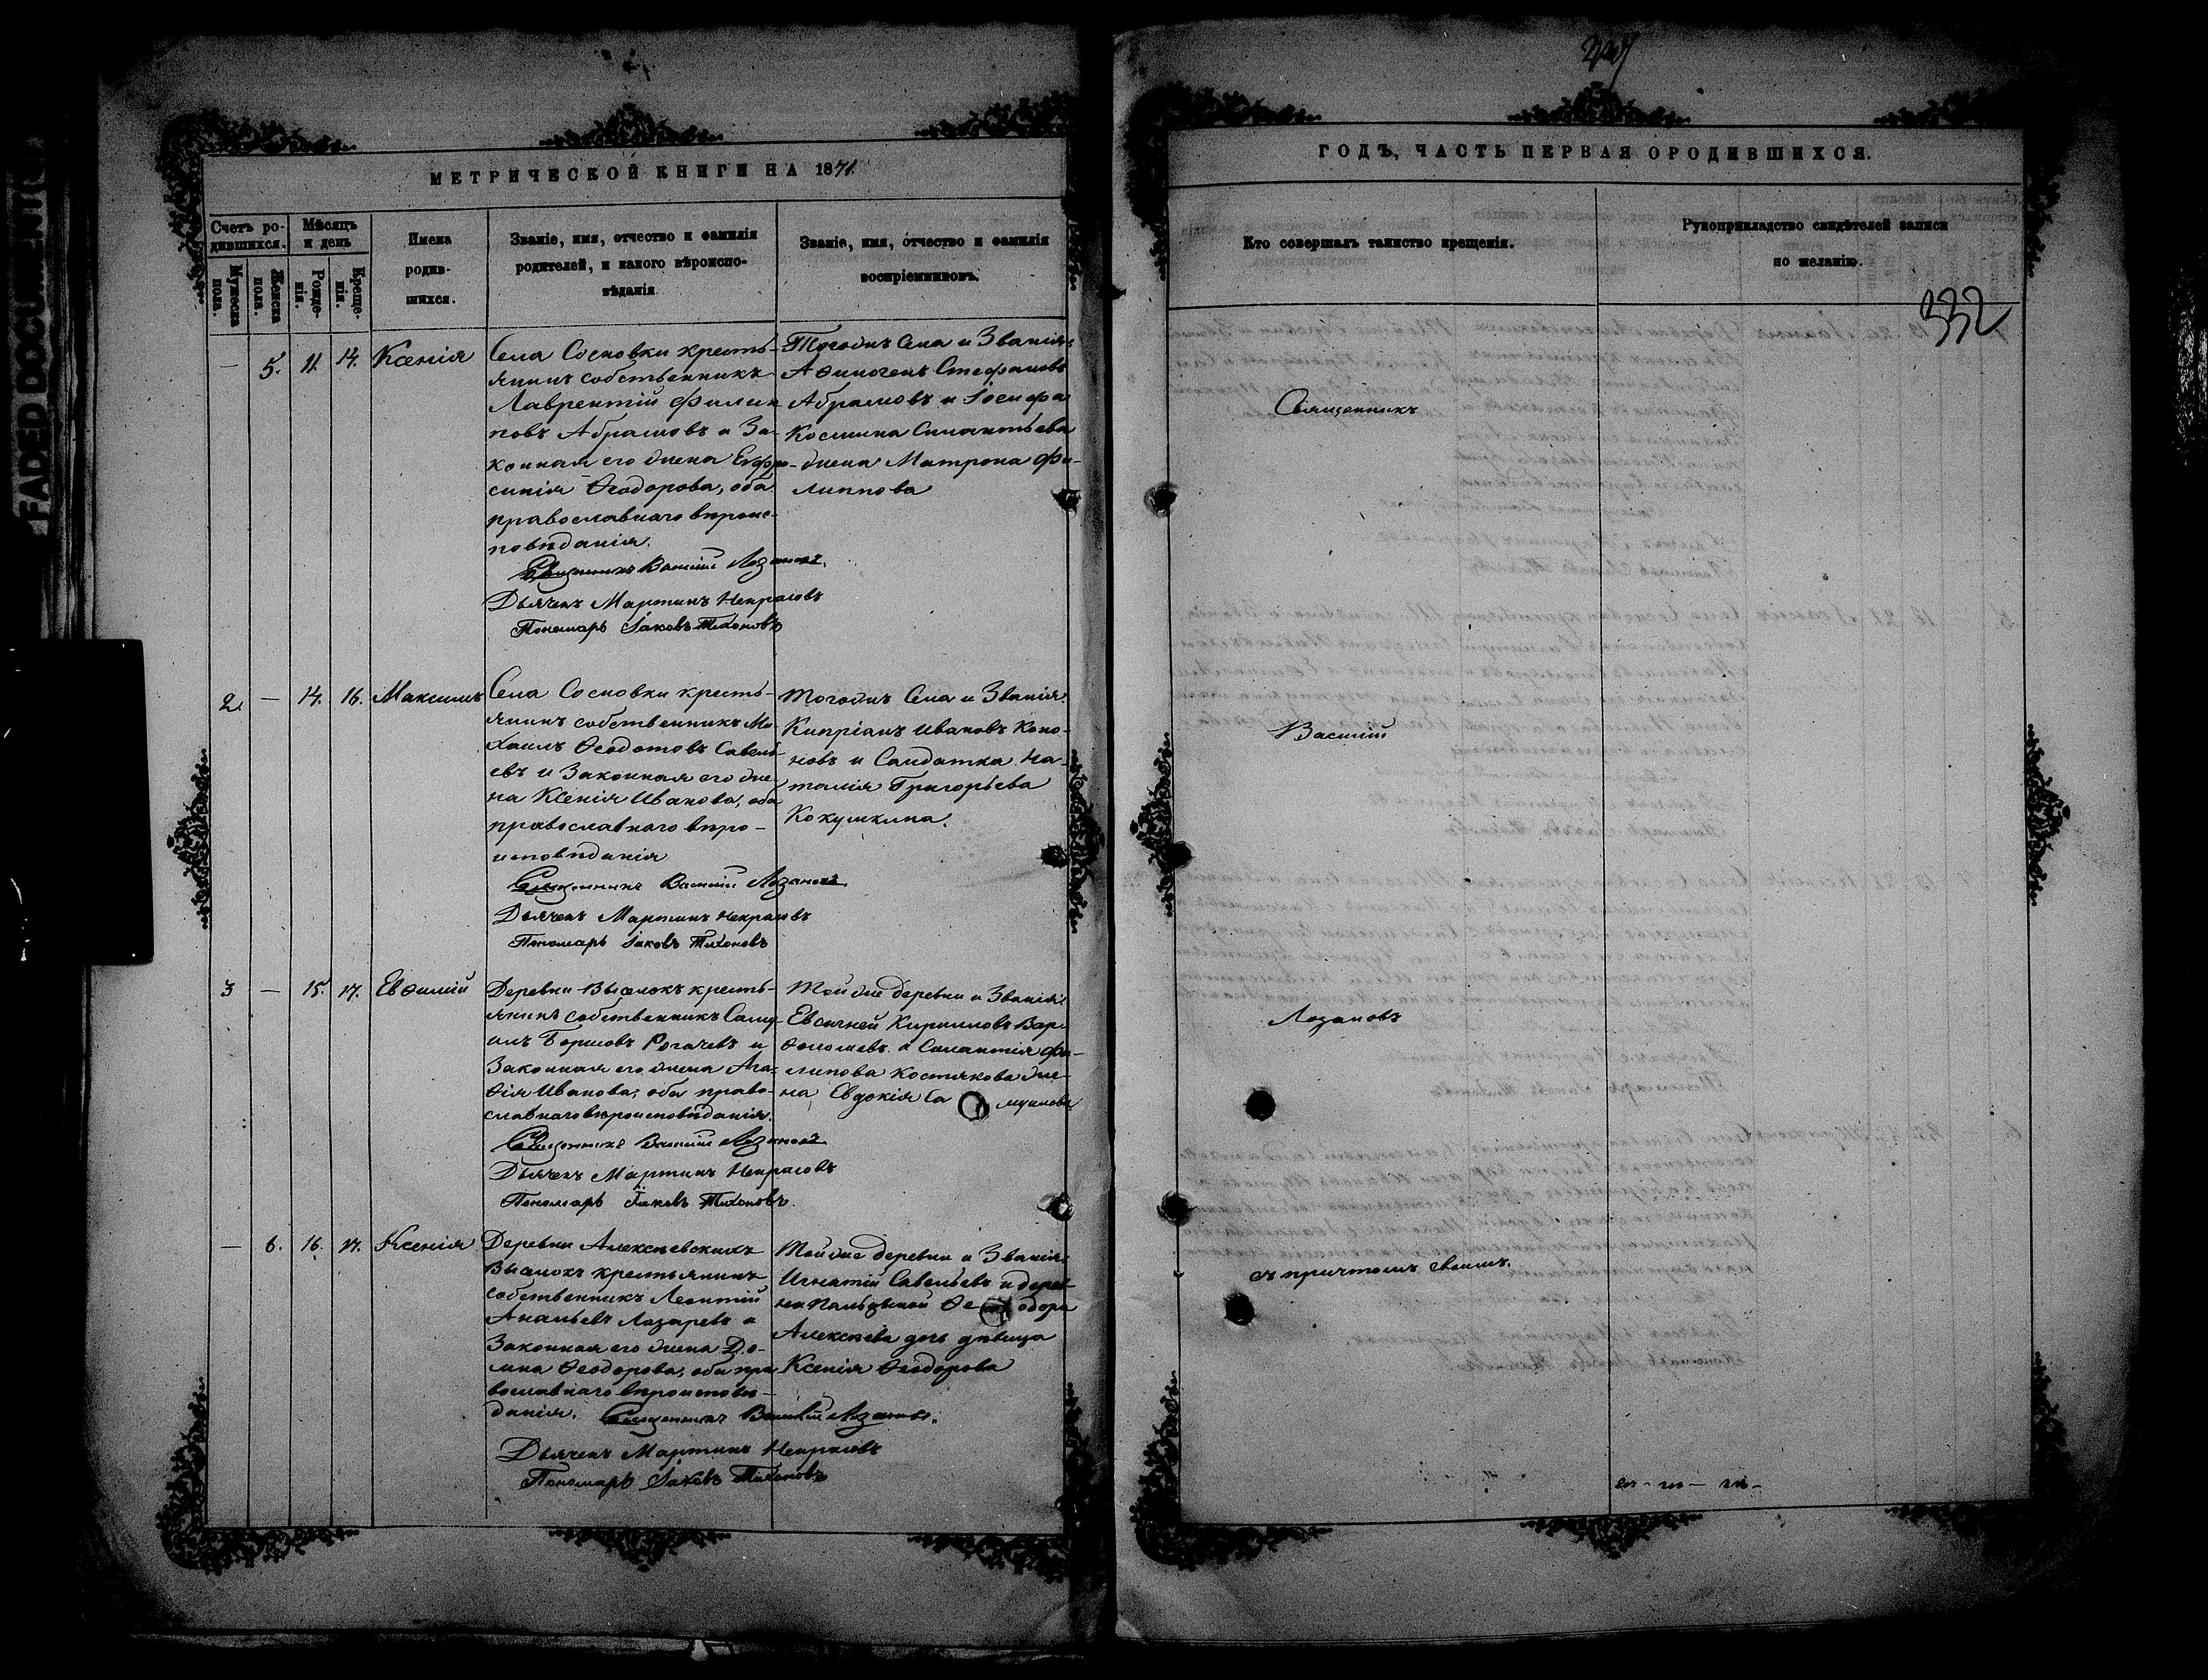 МЕТРИЧЕСКОЙ КНИГИ НА 1871.
Счетъ ро-
дившихся.
Мѣсяцъ
и день
Мужеска
пола.
Женска
пола.
Рожде-
нія.
Креще-
нія.
Имена
родив-
шихся.
Званіе, имя, отчество и фамилія
родителей, и какого вѣроиспо-
вѣданія
Званіе, имя, отчество и фамилія
воспріемниковъ.
— 5. 11. 14. Ксенія
Села Сосновки кресть-
янинъ собственникъ
Лаврентій Филип
повъ Абрамовъ и За-
конная его жена Евфро-
синія Ѳеодорова, оба
православнаго вѣроис-
повѣданія.
Священникъ Василій Лозановъ.
Дьячекъ Мартинъ Некрасовъ
Пономарь Іаковъ Тихоновъ
Тогожъ Села и Званія:
Аѳиногенъ Стефановъ
Абрамовъ и Іосифа
Космина Силантьева
жена Матрона Фи-
липпова
2. — 14. 16. Максимъ
Села Сосновки кресть-
янинъ собственникъ Ми-
хаилъ Ѳеодотовъ Савель-
евъ и Законная его же-
на Ксенія Иванова, оба
православнаго вѣро-
исповѣданія
Священникъ Василій Лозановъ.
Дьячекъ Мартинъ Некрасовъ
Пономарь Іаковъ Тихоновъ
Тогожъ Села и Званія:
Кипріанъ Ивановъ Коно-
новъ и Солдатка На-
талія Григорьева
Кокушкина.
3 — 15. 17. Евѳимій
Деревни Выселокъ кресть-
янинъ собственникъ Саму-
илъ Борисовъ Рогачевъ и
Законная его жена Ага-
ѳія Иванова, оба право-
славнаго вѣроисповѣданія.
Священникъ Василій Лозановъ
Дьячекъ Мартинъ Некрасовъ
Пономарь Іаковъ Тихоновъ.
Той же деревни и Званія:
Евсигней Кирилловъ Вар-
ѳоломевъ и Силантія Фи-
липова Костикова же-
на Евдокія Са муилова
— 6. 16. 17. Ксенія
Деревни Алексѣевскихъ
Выселокъ крестьянинъ
собственникъ Леонтій
Ананьевъ Лазаревъ и
Законная его жена До-
мна Ѳеодорова, оба пра
вославнаго вѣроисповѣ-
данія. Священникъ Василій Лозановъ.
Дьячекъ Мартинъ Некрасовъ
Пономарь Іаковъ Тихоновъ
Той же деревни и Званія:
Игнатій Савельевъ и дерев
ни Ѳе одора
Алексѣева дочь дѣвица
Ксенія Ѳеодорова
ГОДЪ, ЧАСТЬ ПЕРВАЯ О РОДИВШИХСЯ.
Кто совершалъ таинство крещенія.
Рукоприкладство свидѣтелей записи
по желанію.
332
Священникъ
Василій
Лозановъ
съ причтомъ своимъ.
FADED DOCUMENT